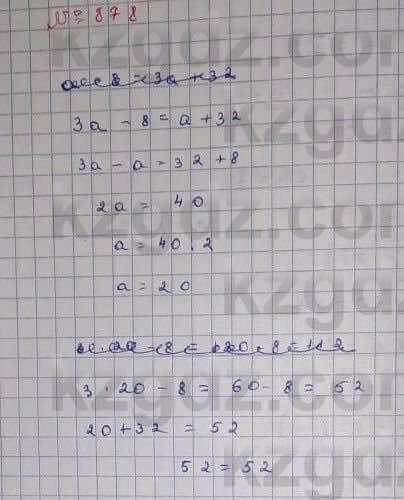 № 878
3a - 8 = a + 32
3a - a = 32 + 8
2a = 40
a = 40 : 2
a = 20
3 · 20 - 8 = 60 - 8 = 52
20 + 32 = 52
52 = 52
kzgdz.com